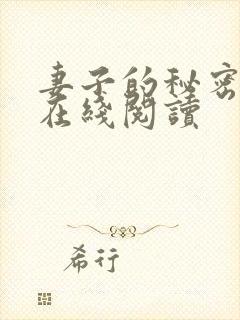 妻子的秘密
在綫閱讀
希行